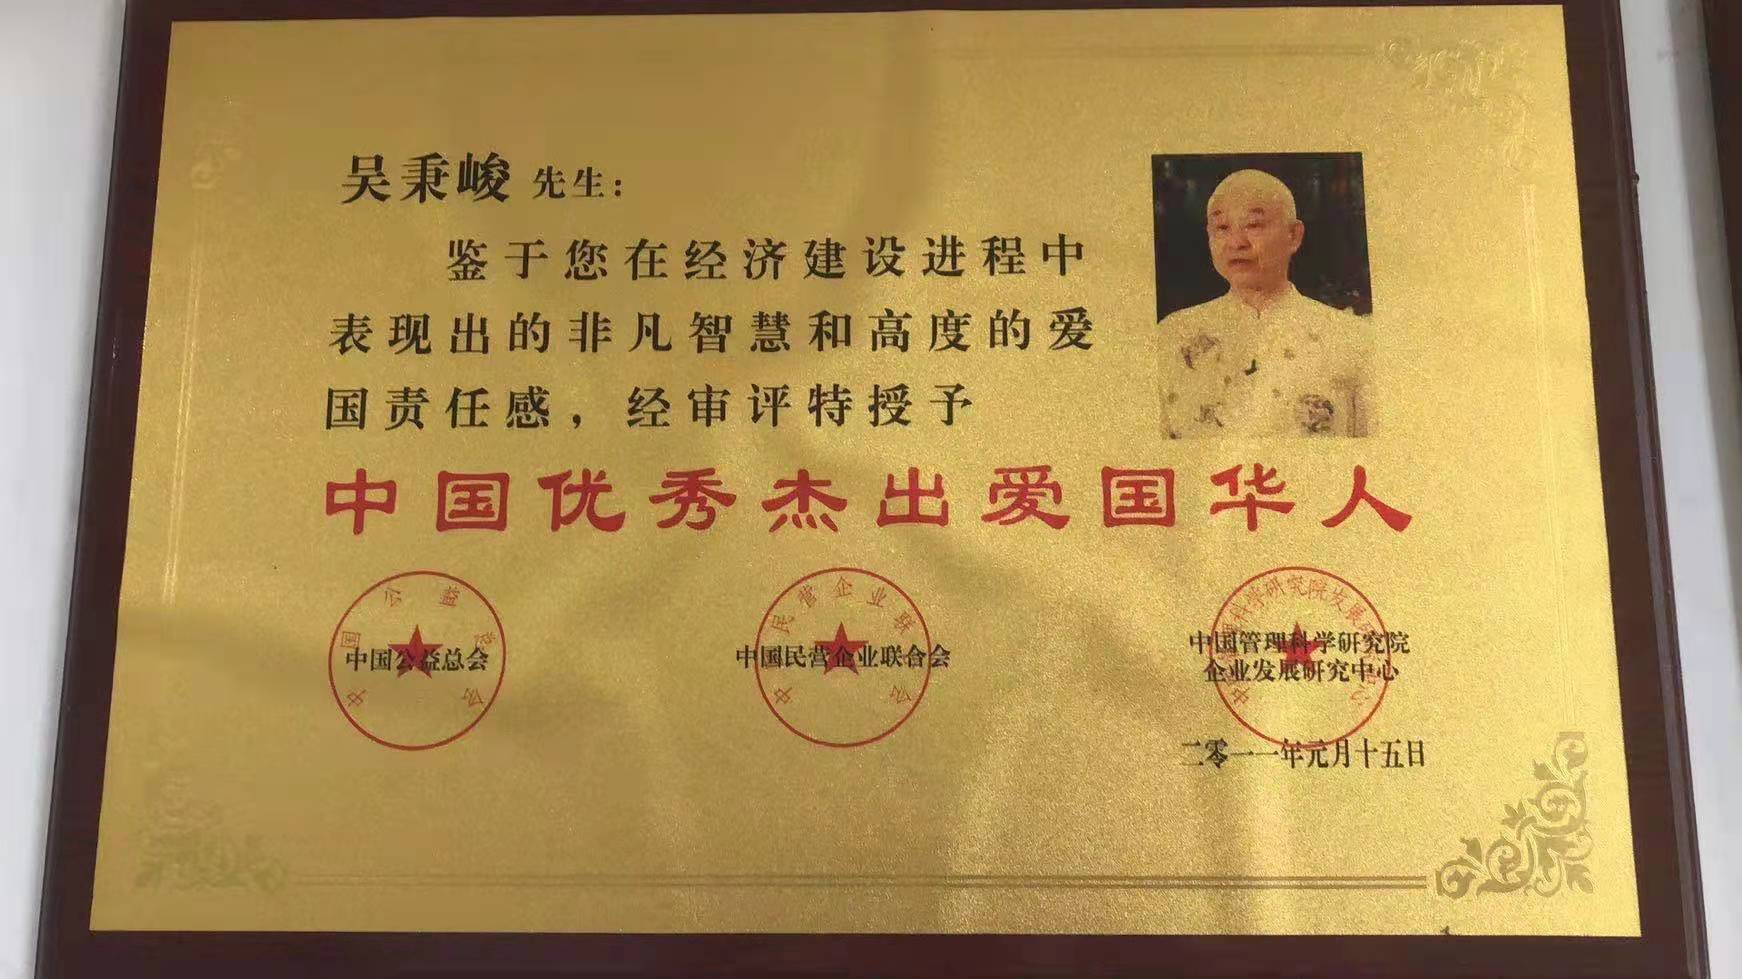 吴秉峻 先生：
鉴于您在经济建设进程中
表现出的非凡智慧和高度的爱
国责任感，经审评特授予
中国优秀杰出爱国华人
中国公益总会
中国公益总会
中国民营企业联合会
中国民营企业联合会
中国管理科学研究院
企业发展研究中心
二零一一年元月十五日